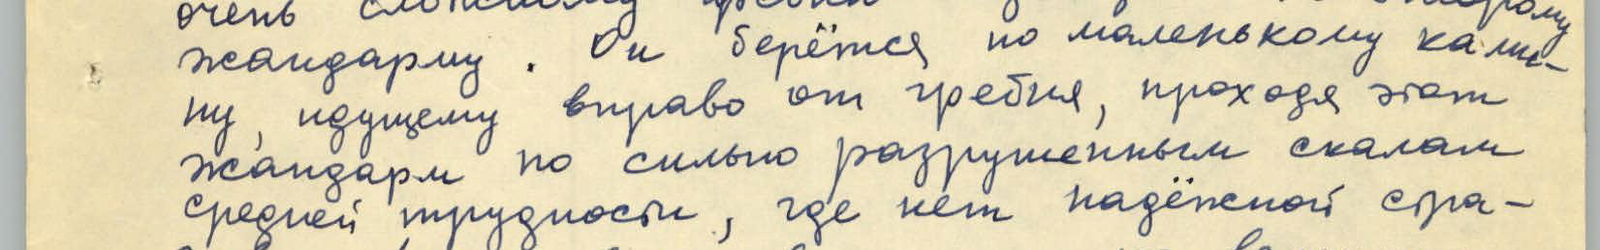 очень сложному гребню второму
жандарму. Он берётся по маленькому ками-
ну, идущему вправо от гребня, проходя этот
жандарм по сильно разрушенным скалам
средней трудности, где нет надёжной стра-